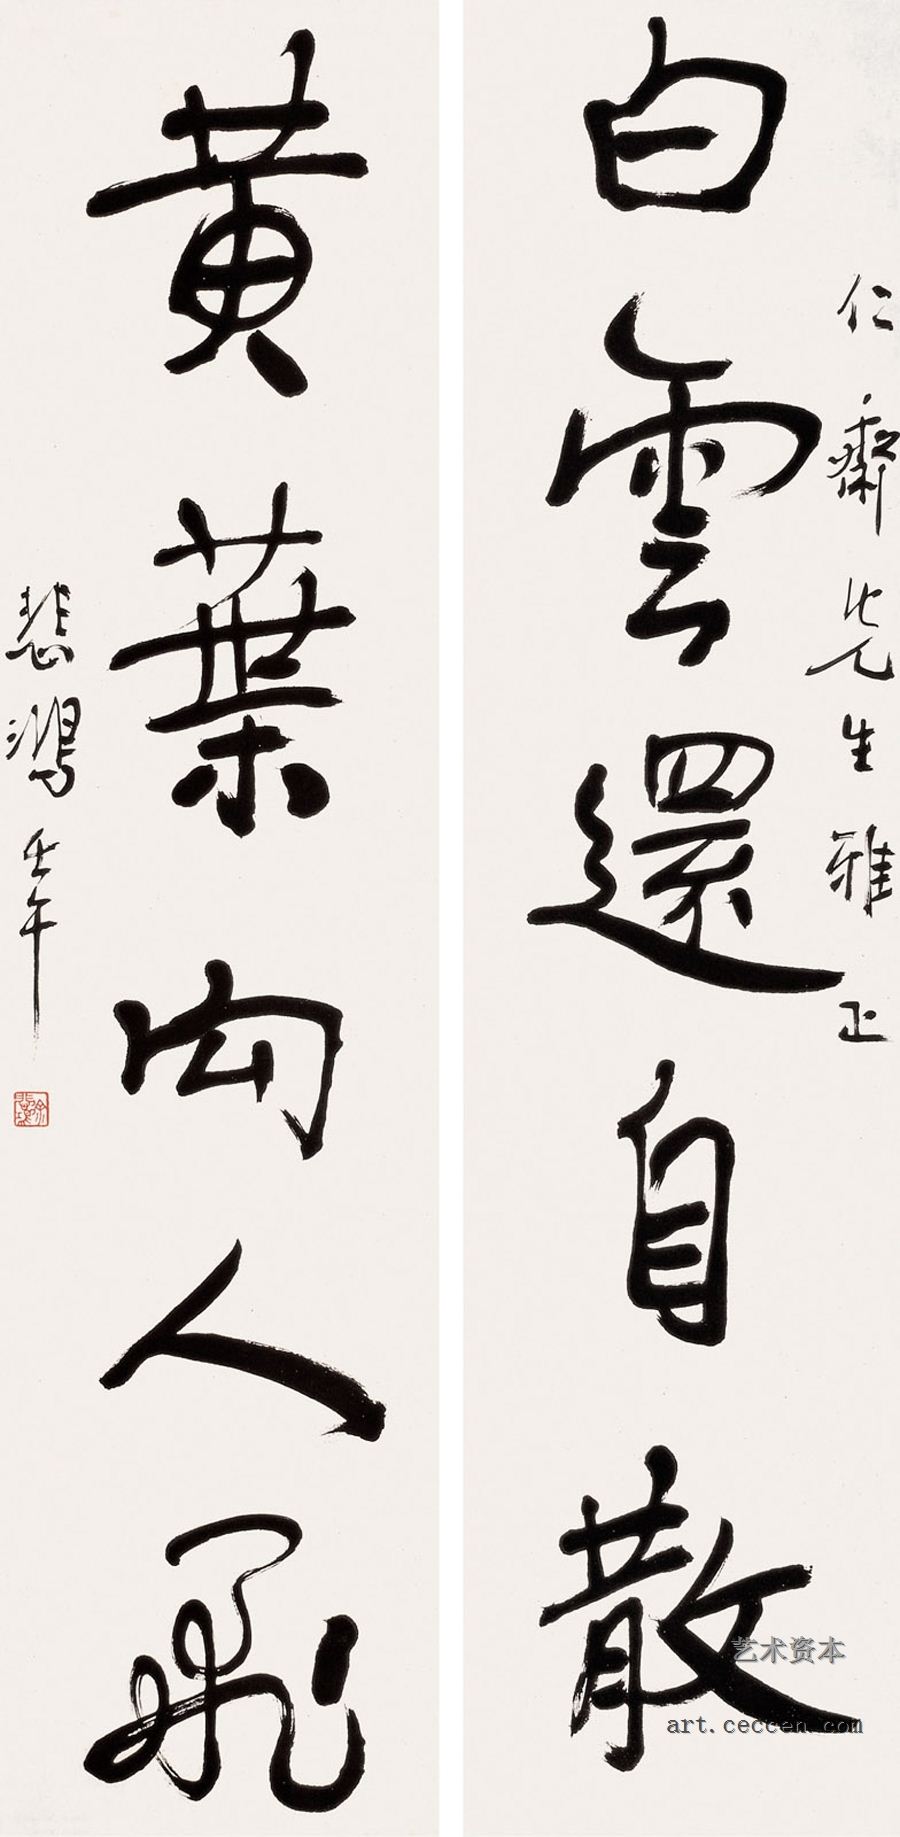 仁齋先生雅正
白雲還自散
黃葉向人飛
悲鴻 壬午
徐悲鴻
艺术资本
art.ceccen.com